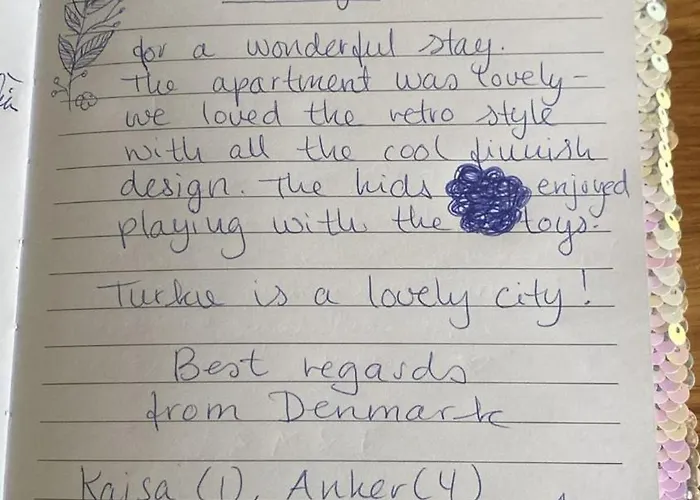 for a wonderful stay.
The apartment was lovely -
we loved the retro style
with all the cool finnish
design. The kids enjoyed
playing with the toys.
Turku is a lovely city!
Best regards
from Denmark
Kaisa (1), Anker (4)